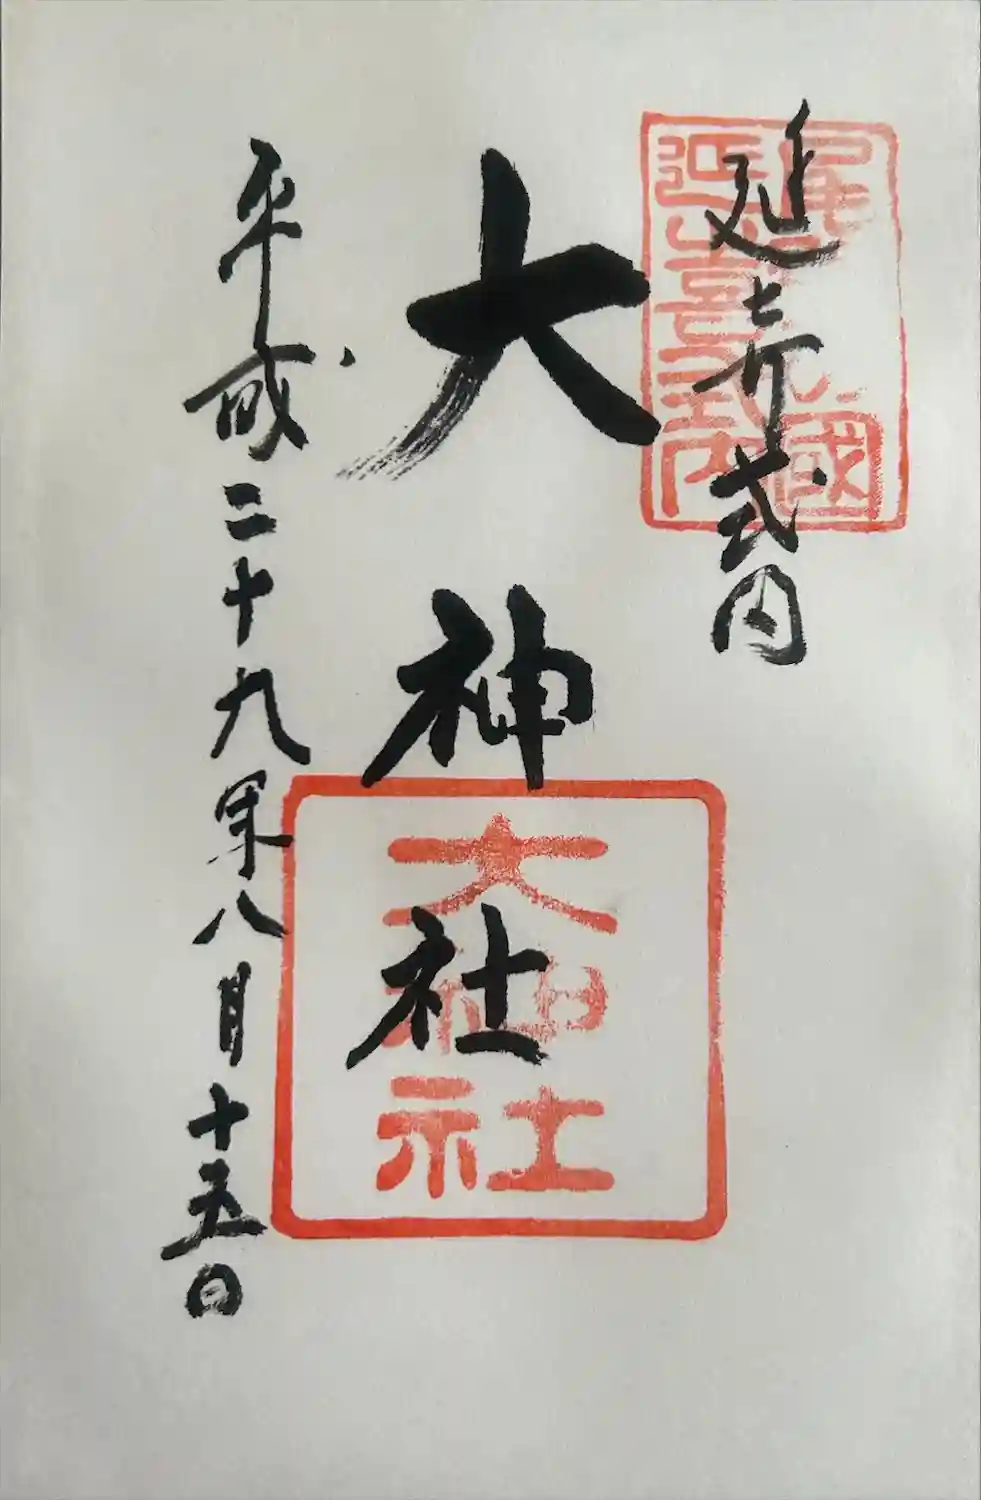 延喜式内
尾張國
延喜式内
大神社
大神社
平成二十九年八月十五日